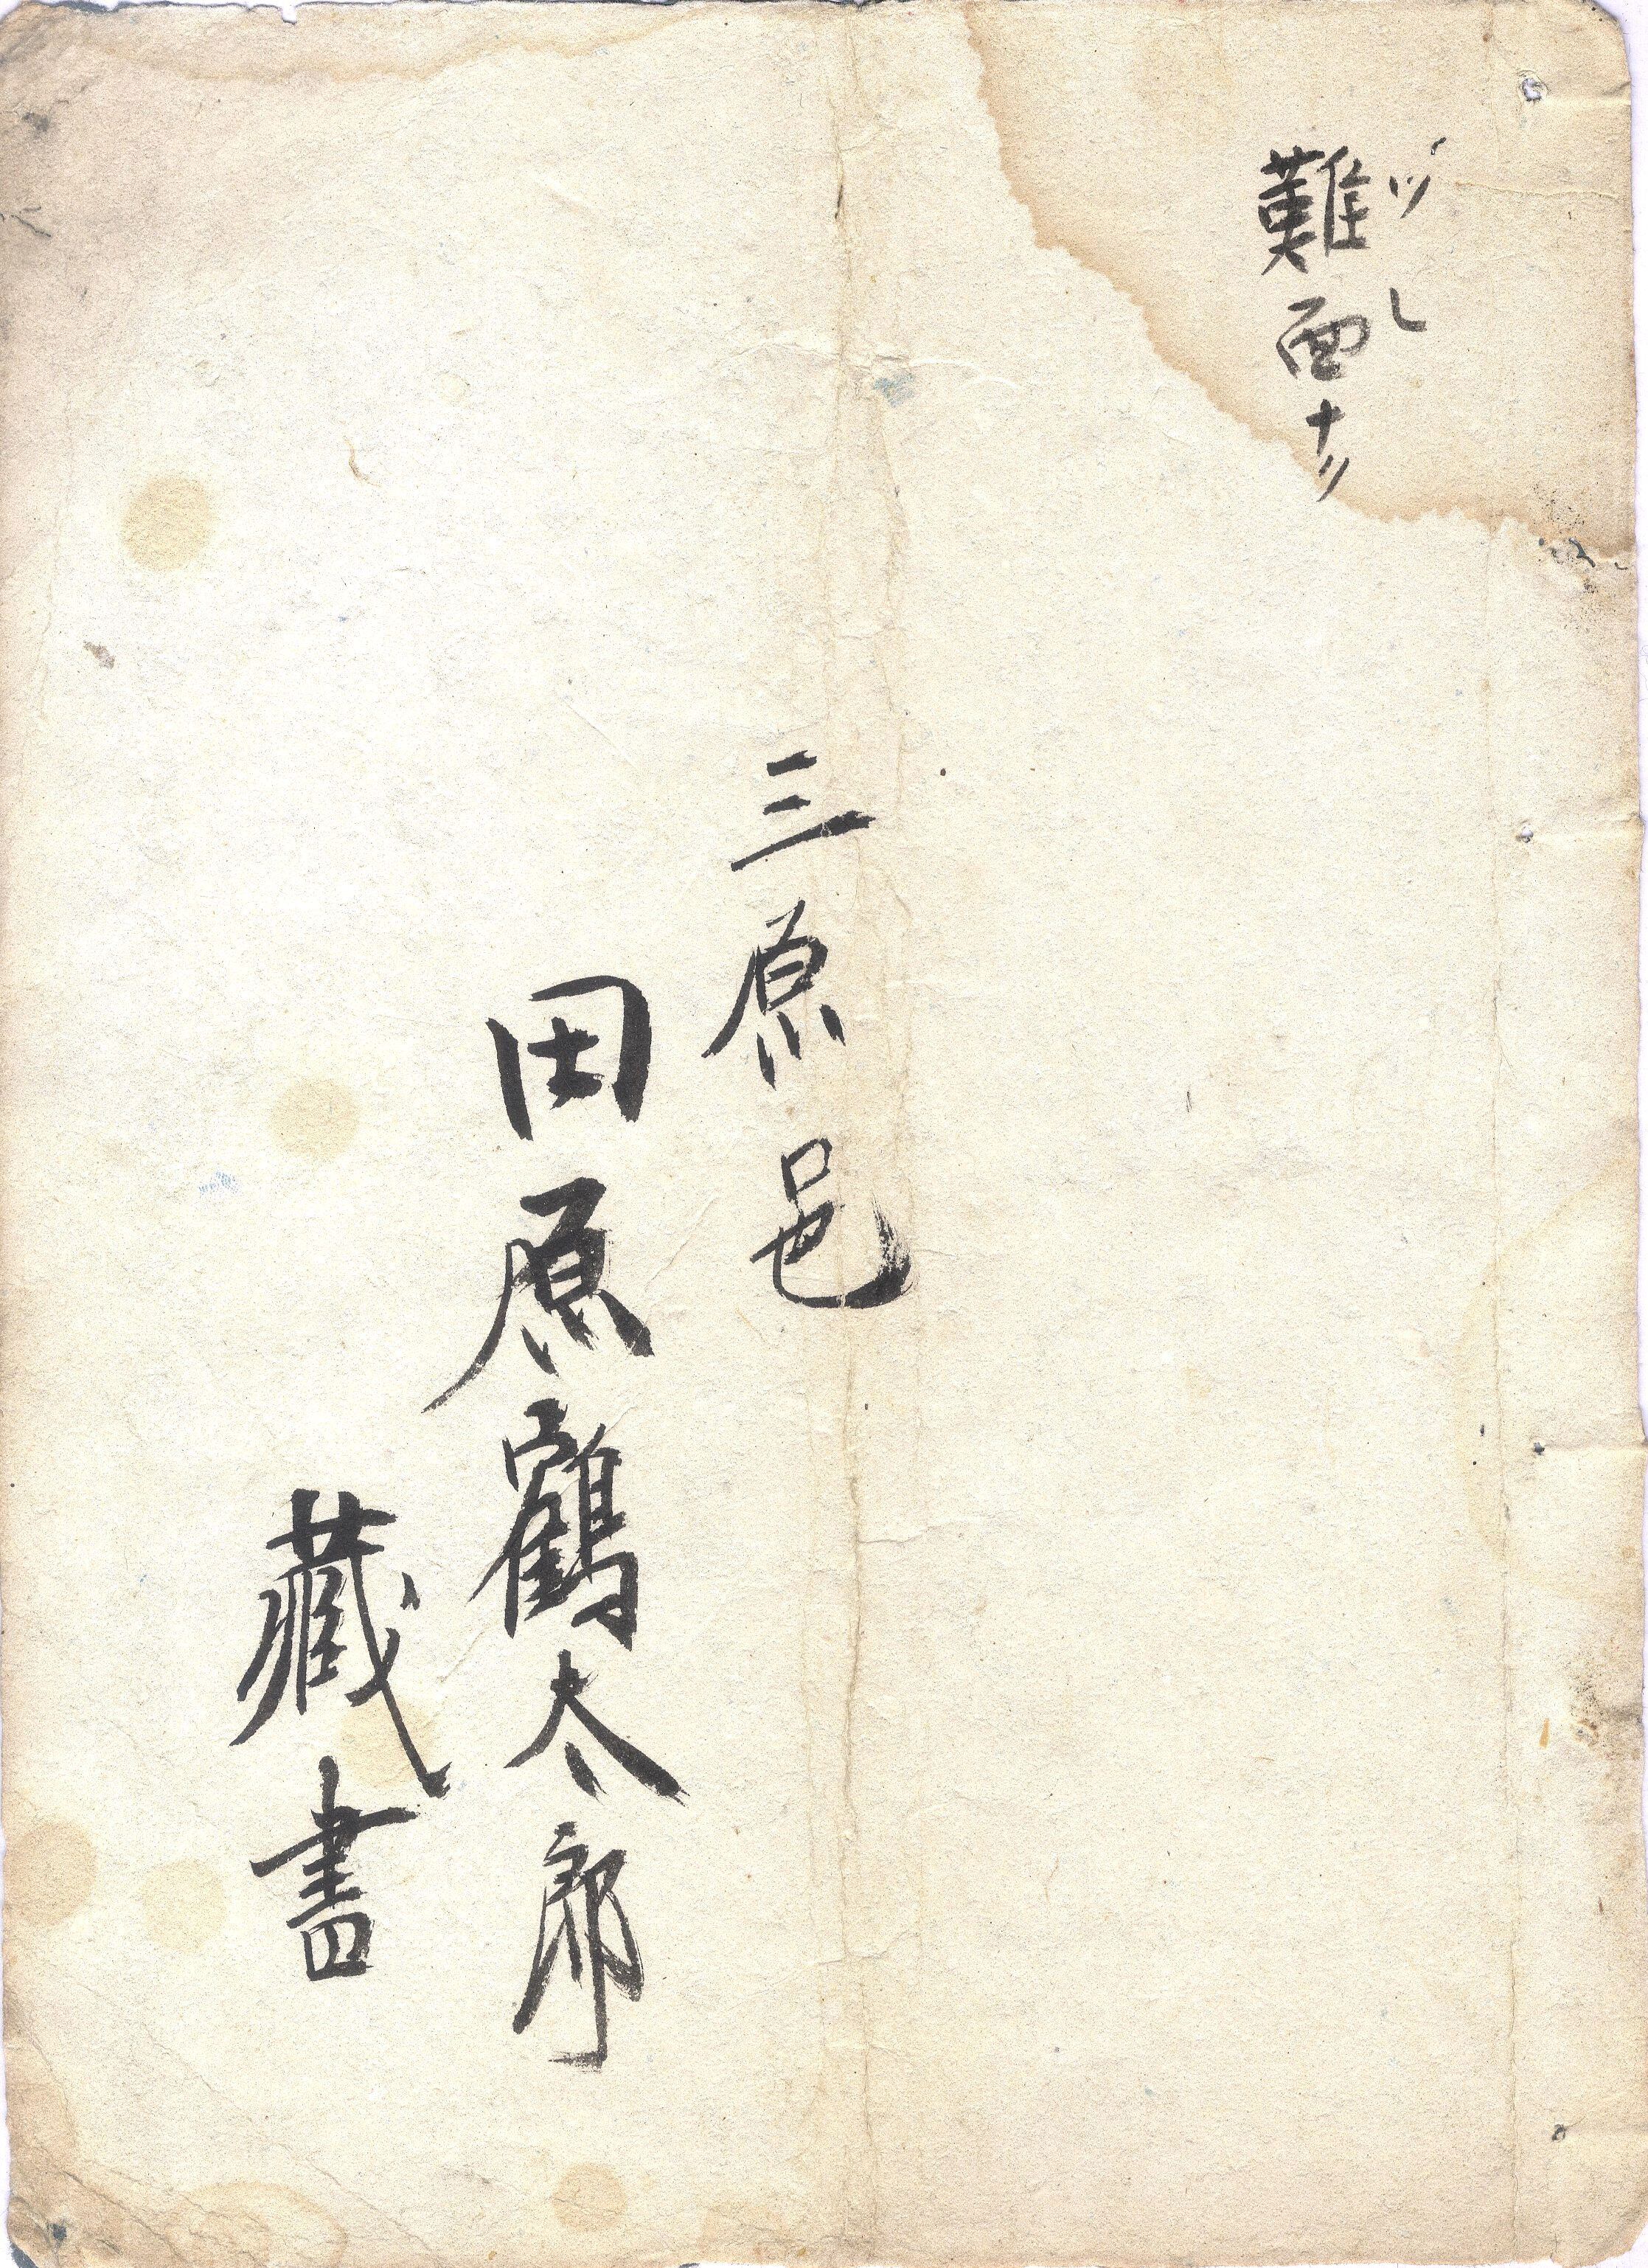 ツレ
難面ナリ
三原邑
田原鶴太郎
藏書